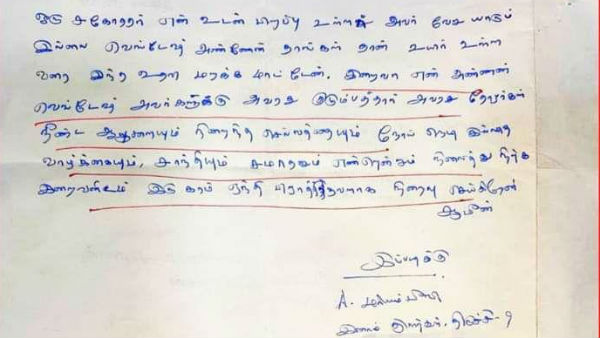 ஒரு சகோதரர் என் உடன் பிறப்பு உள்ளது அவர் வேறு யாரும்
இல்லை வெங்டேஷ் அண்ணன் தாங்கள் தான் உயிர் உள்ள
வரை இந்த உதவி மறக்க மாட்டேன். இறைவா என் அண்ணன்
வெங்டேஷ் அவர்களுக்கு அவரது குடும்பத்தார் அவரது தோழர்கள்
நீண்ட ஆயுளையும் நிறைந்த செல்வத்தையும் நோய் நொடி இல்லாத
வாழ்க்கையும், சாந்தியும் சமாதானம் என்னென்றும் நிலைத்து நிற்க
இறைவனிடம் இரு கரம் ஏந்தி பிரார்த்தனையாக நிறைவு செய்கிறேன்
ஆமீன்
இப்படிக்கு
A. மரியம் பீவி
திருச்சி - 9